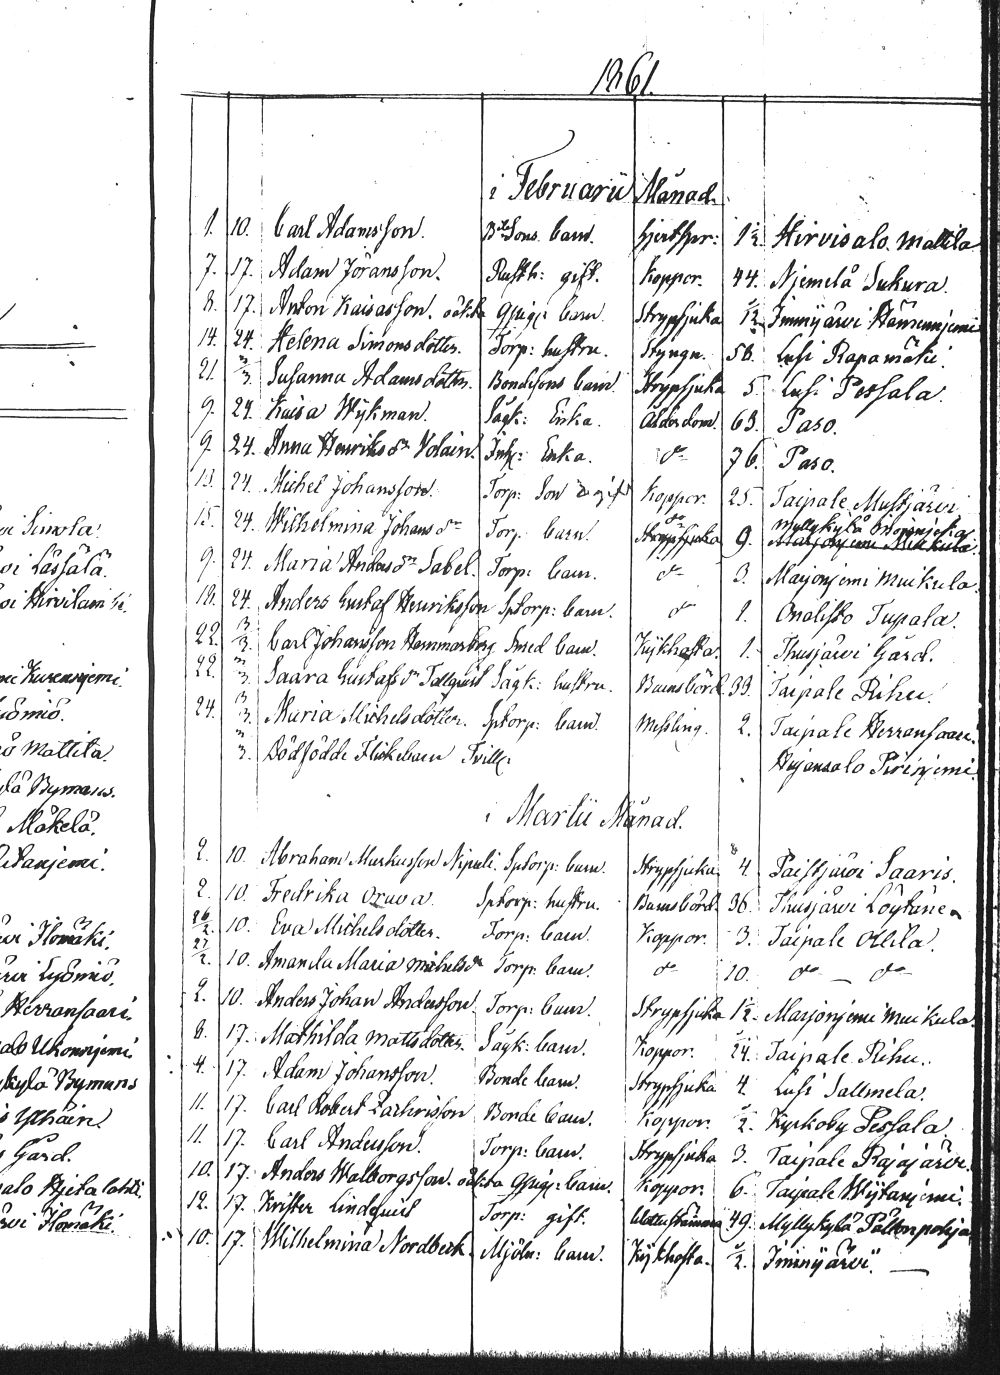 1861.
i Februarii Månad.
1. 10. Carl Adamsson. Bd Sons barn. Hjertspr: 1/2 Hirvisalo Mattila
7. 17. Adam Jöransson. Rusth: gift. Koppor. 44. Njemelä Sukura.
8. 17. Anton Kaisasson. oäkta Gjuge: barn. Strypsjuka 1/2 Imnijärvi Hämeenjemi
14. 24. Helena Simonsdotter. Torp: hustru. Styngn. 58. Lusi Rapamäki.
21. 3/3. Susanna Adamsdotter. Bondesons barn Strypsjuka 5. Lusi Pessala.
9. 24. Kaisa Wijkman. Säyt: Enka. Ålderdom. 63. Paso.
9. 24. Anna Henriksdr Volain. Inh: Enka. do 76. Paso.
13. 24. Michel Johansson. Torp: Son Koppor. 25. Taipale Mustjärvi
15. 24. Wilhelmina Johansdr Torp barn. do 9. Myllykylä
Strypsjuka Marjonjemi Muikula
9. 24. Maria Andersdr Sabel. Torp: barn. do 3. Marjonjemi Muikula.
18. 24. Anders Gustaf Henriksson Sptorp: barn. do 1. Onalisto Tupala.
22. 3/3. Carl Johansson Hammarberg Smed barn. Kijkhosta. 1. Ihusjärvi Gård.
22. 3/3. Saara Gustafsdr Tallquist Säyt: hustru. Barnsbörd. 39. Taipale Rihu.
24. 3/3. Maria Michelsdotter. Sptorp: barn. Messling. 2. Taipale Herransaari.
3/3. Dödfödde Flickebarn Tvill: Hujansalo Pirinjemi.
i Martii Månad.
2. 10. Abraham Markusson Nipuli. Sptorp: barn. Strypsjuka. 4. Paistjärvi Saaris.
2. 10. Fredrika Orava. Sptorp: hustru. Barnsbörd. 36. Ihusjärvi Löytäne
26/2. 10. Eva Michelsdotter. Torp: barn. Koppor. 3. Taipale Ollila.
27/2. 10. Amanda Maria Michelsdr Torp: barn. do 10. do — do
2. 10. Anders Johan Andersson. Torp: barn. Strypsjuka 1/2. Marjonjemi Muikula.
8. 17. Mathilda Mattsdotter. Säyt: barn. Koppor. Taipale Rihu.
4. 17. Adam Johansson. Bonde barn. Strypsjuka 4. Lusi Sallmela.
11. 17. Carl Robert Zachrisson Bonde barn. Koppor. 1/2. Kyrkoby Pessala.
11. 17. Carl Andersson. Torp: barn. Strypsjuka 3. Taipale Rajajärvi.
10. 17. Anders Walborgsson. oäkta Gjuge: barn. Koppor. 6. Taipale Wijtanjemi.
12. 17. Krister Lindquist Torp: gift. 49. Myllykylä Pältenpohja
10. 17. Wilhelmina Nordberk. Mjöln: barn. Kijkhosta. 1/2. Iminijärvi. —
Simola.
Lässälä.
Hirvilambi.
Kurenniemi.
Lyömiö.
Mattila.
Bymans.
Mäkelä.
Witanjemi.
Ilomäki.
Lyömiö.
Herransaari.
Ukonnjemi
kylä Bymans
Gård.
salo Hjeta lahti.
Ilomäki.